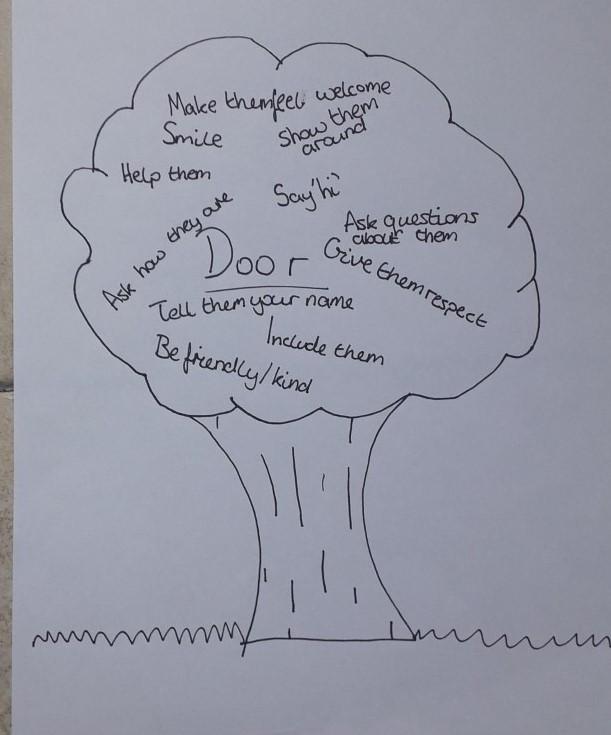 Make them feel welcome
Smile
Show them
around
Help them
Say 'hi'
Ask how they are
Ask questions
about them
Door
Give them respect
Tell them your name
Include them
Be friendly/kind